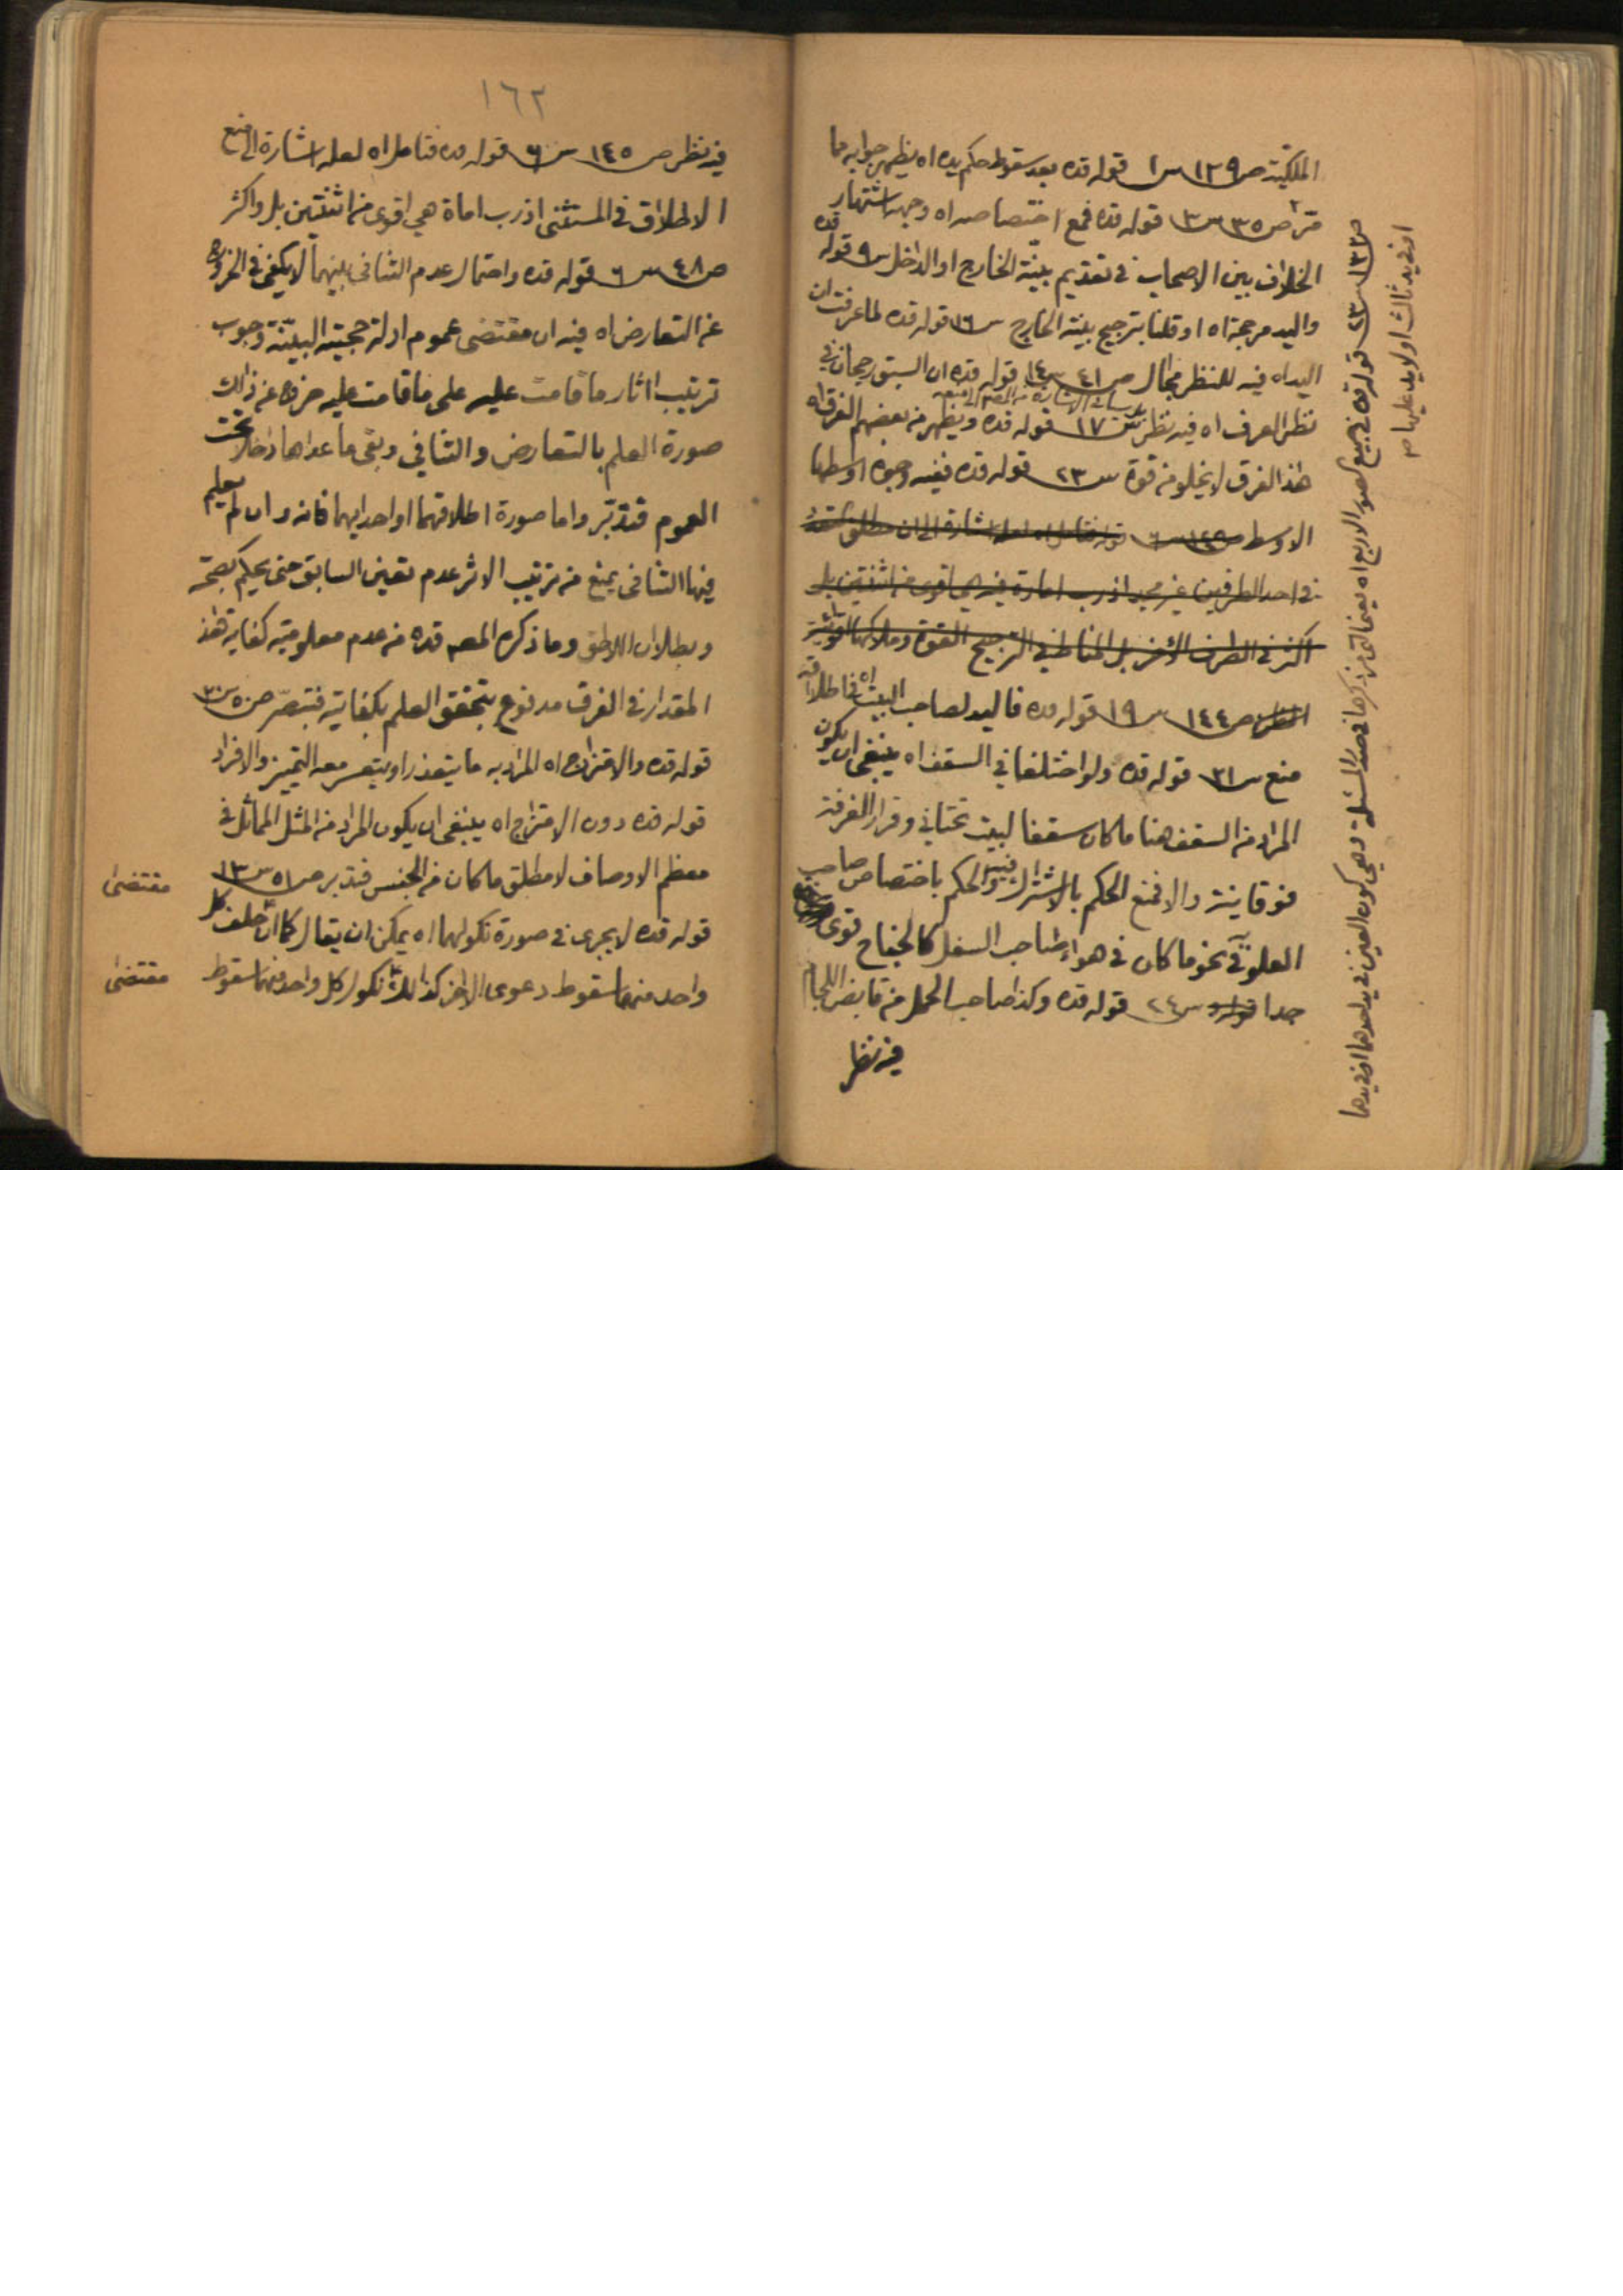 الملكية ص ١٢٩ س ١ قوله قده بعد سقوط حكم يده اه يظهر جوابه مما
مر ص ٣٥ س ٣ قوله قده فمع اختصاصه اه وجهه اشتهار
الخلاف بين الاصحاب في تقديم بينة الخارج او الداخل س ٩ قوله قده
واليد مرجحة اه او قلنا بترجيح بينة الخارج س ١٦ قوله قده لما عرفت ان
اليد اه فيه للنظر مجال ص ٤١ س ١٤ قوله قده ان السبق رجحان في
نظر العرف اه فيه نظر س ١٧ قوله قده ويظهر من بعضهم الفرق اه
هذا الفرق لا يخلو من قوة س ٢٣ قوله قده ففيه وجوه اوسطها
الاوسط
في احد الطرفين غير مجد اذ رب امارة فيه هي اقوى من اثنتين بل
اكثر في الطرف الاخر بل المناط في الترجيح القوة وملاكها
ص ١٤٤ س ١٩ قوله قده فاليد لصاحب البيت اه في اطلاقه
منع س ٣١ قوله قده ولو اختلفا في السقف اه ينبغي ان يكون
المراد من السقف هنا ما كان سقفا لبيت تحتاني وقرار الغرفة
فوقانية والا فمنع الحكم بالاشتراك فيه والحكم باختصاص صاحب
العلو في نحو ما كان في هواء صاحب السفل كالجناح قوى
جدا س ٢٤ قوله قده وكذا صاحب الحمل من قابض اللجام
فيه نظر
ص ١٣٢ س ٢٣ قوله قده في جميع الصور الاربع اه يعنى التى ذكرها في صدر المسئلة وهي كون العين في يد احدهما او في يدهما
او في يد ثالث او لا يد عليها
١٦٢
فيه نظر ص ١٤٥ س ٦ قوله قده فتامل اه لعله اشارة الى منع
الاطلاق في المستثنى اذ رب اماة هي اقوى من اثنتين بل واكثر
ص ٤٨ س ٦ قوله قده واحتمال عدم التنافى بينهما لا يكفى في الخروج
عن التعارض اه فيه ان مقتضى عموم ادلة حجية البينة وجوب
ترتيب اثار ما قامت عليه على ما قامت عليه خرج عن ذلك
صورة العلم بالتعارض والتنافي وبقى ما عداها داخلا تحت
العموم فتدبر واما صورة اطلاقهما او احدايهما فانه وان لم يعلم
فيها التنافى يمنع من ترتيب الاثر عدم تعين السابق حتى يحكم بصحته
وبطلان اللاحق وما ذكره المص قده من عدم معلومية كفاية هذا
المقدار في الفرق مدفوع بتحقق العلم بكفايته فتبصر ص ٥٠ س ٣٠
قوله قده والامتزاج اه المراد به ما يتعذر او يتعسر معه التميز والافراد
قوله قده دون الامتزاج اه ينبغى ان يكون المراد من المثل المماثل في
معظم الاوصاف لا مطلق ما كان من الجنس فتدبر ص ٥١ س ١٣
قوله قده لا يجرى في صورة نكولهما اه يمكن ان يقال كما ان حلف كل
مقتضى
واحد منهما سقوط دعوى الاخر كذلك نكول كل واحد منهما سقوط
مقتضى